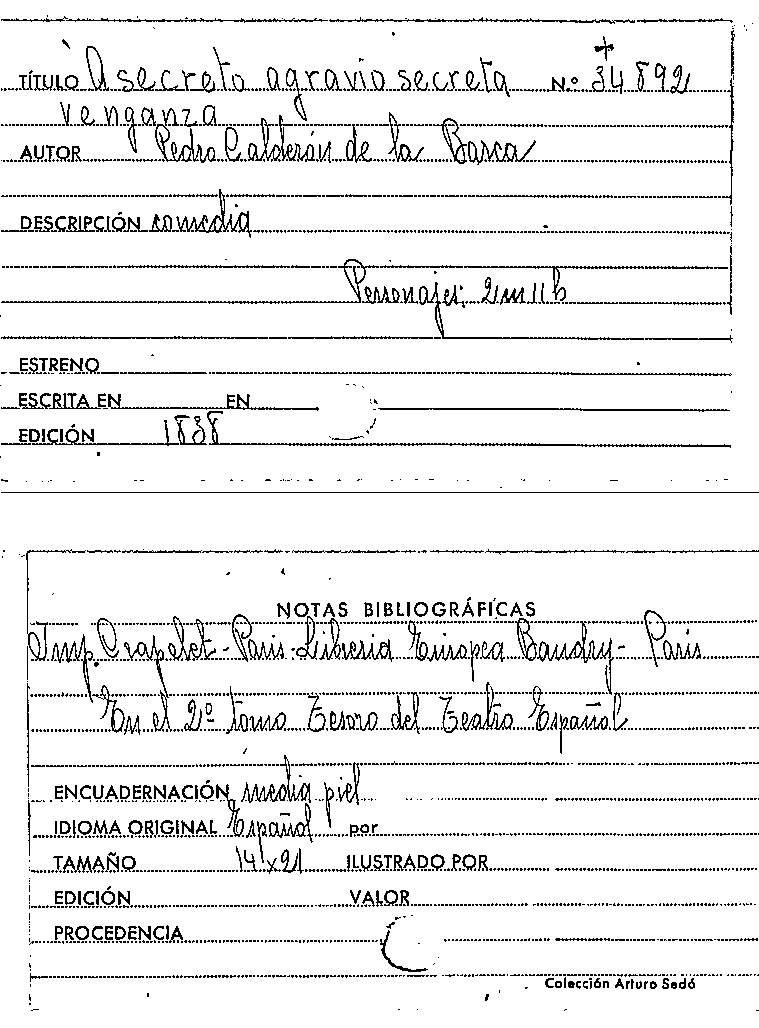 TÍTULO A secreto agravio secreta N.º 34892
venganza
AUTOR Pedro Calderón de la Barca
DESCRIPCIÓN comedia
Personajes: 2m 11h
ESTRENO
ESCRITA EN EN
EDICIÓN 1838
NOTAS BIBLIOGRÁFICAS
Imp. Crapelet - Paris - Libreria Europea Baudry - Paris
En el 2º tomo Tesoro del Teatro Español
ENCUADERNACIÓN media piel
IDIOMA ORIGINAL Español por
TAMAÑO 14 x 21 ILUSTRADO POR
EDICIÓN VALOR
PROCEDENCIA
Colección Arturo Sedó